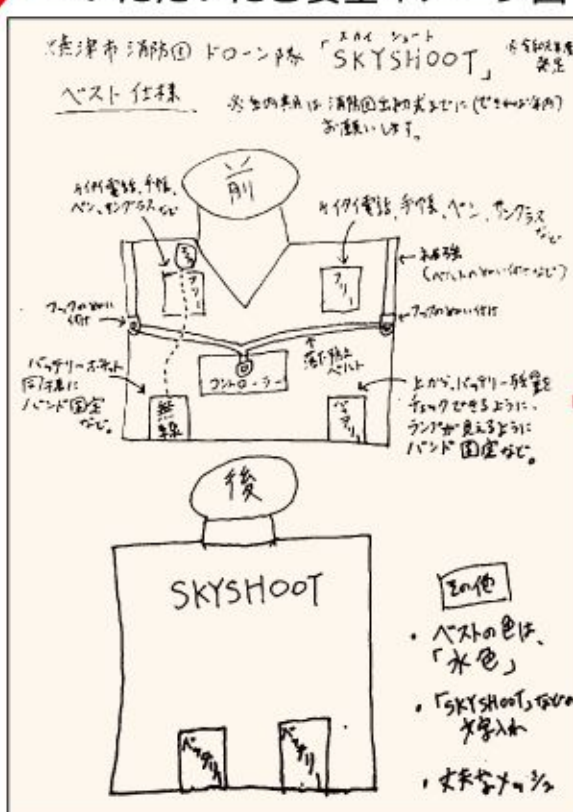 焼津市消防団 ドローン隊「SKYSHOOT」
スカイ シュート
ベスト仕様
お願いします。
前
ケイタイ電話、手帳、
ペン、サングラスなど
ケイタイ電話、手帳、ペン、サングラス
など
フリー
フリー
補強
フックのぬい付け
フックのぬい付け
落下防止
ベルト
コントローラー
バッテリーポケット
同様に
バンド固定
など。
無線
バッテリー
上から、バッテリー残量を
チェックできるように、
ランプが見えるように
バンド固定など。
後
SKYSHOOT
バッテリー
バッテリー
その他
・ベストの色は、
「水色」
・「SKYSHOOT」などの
文字入れ
・丈夫なメッシュ